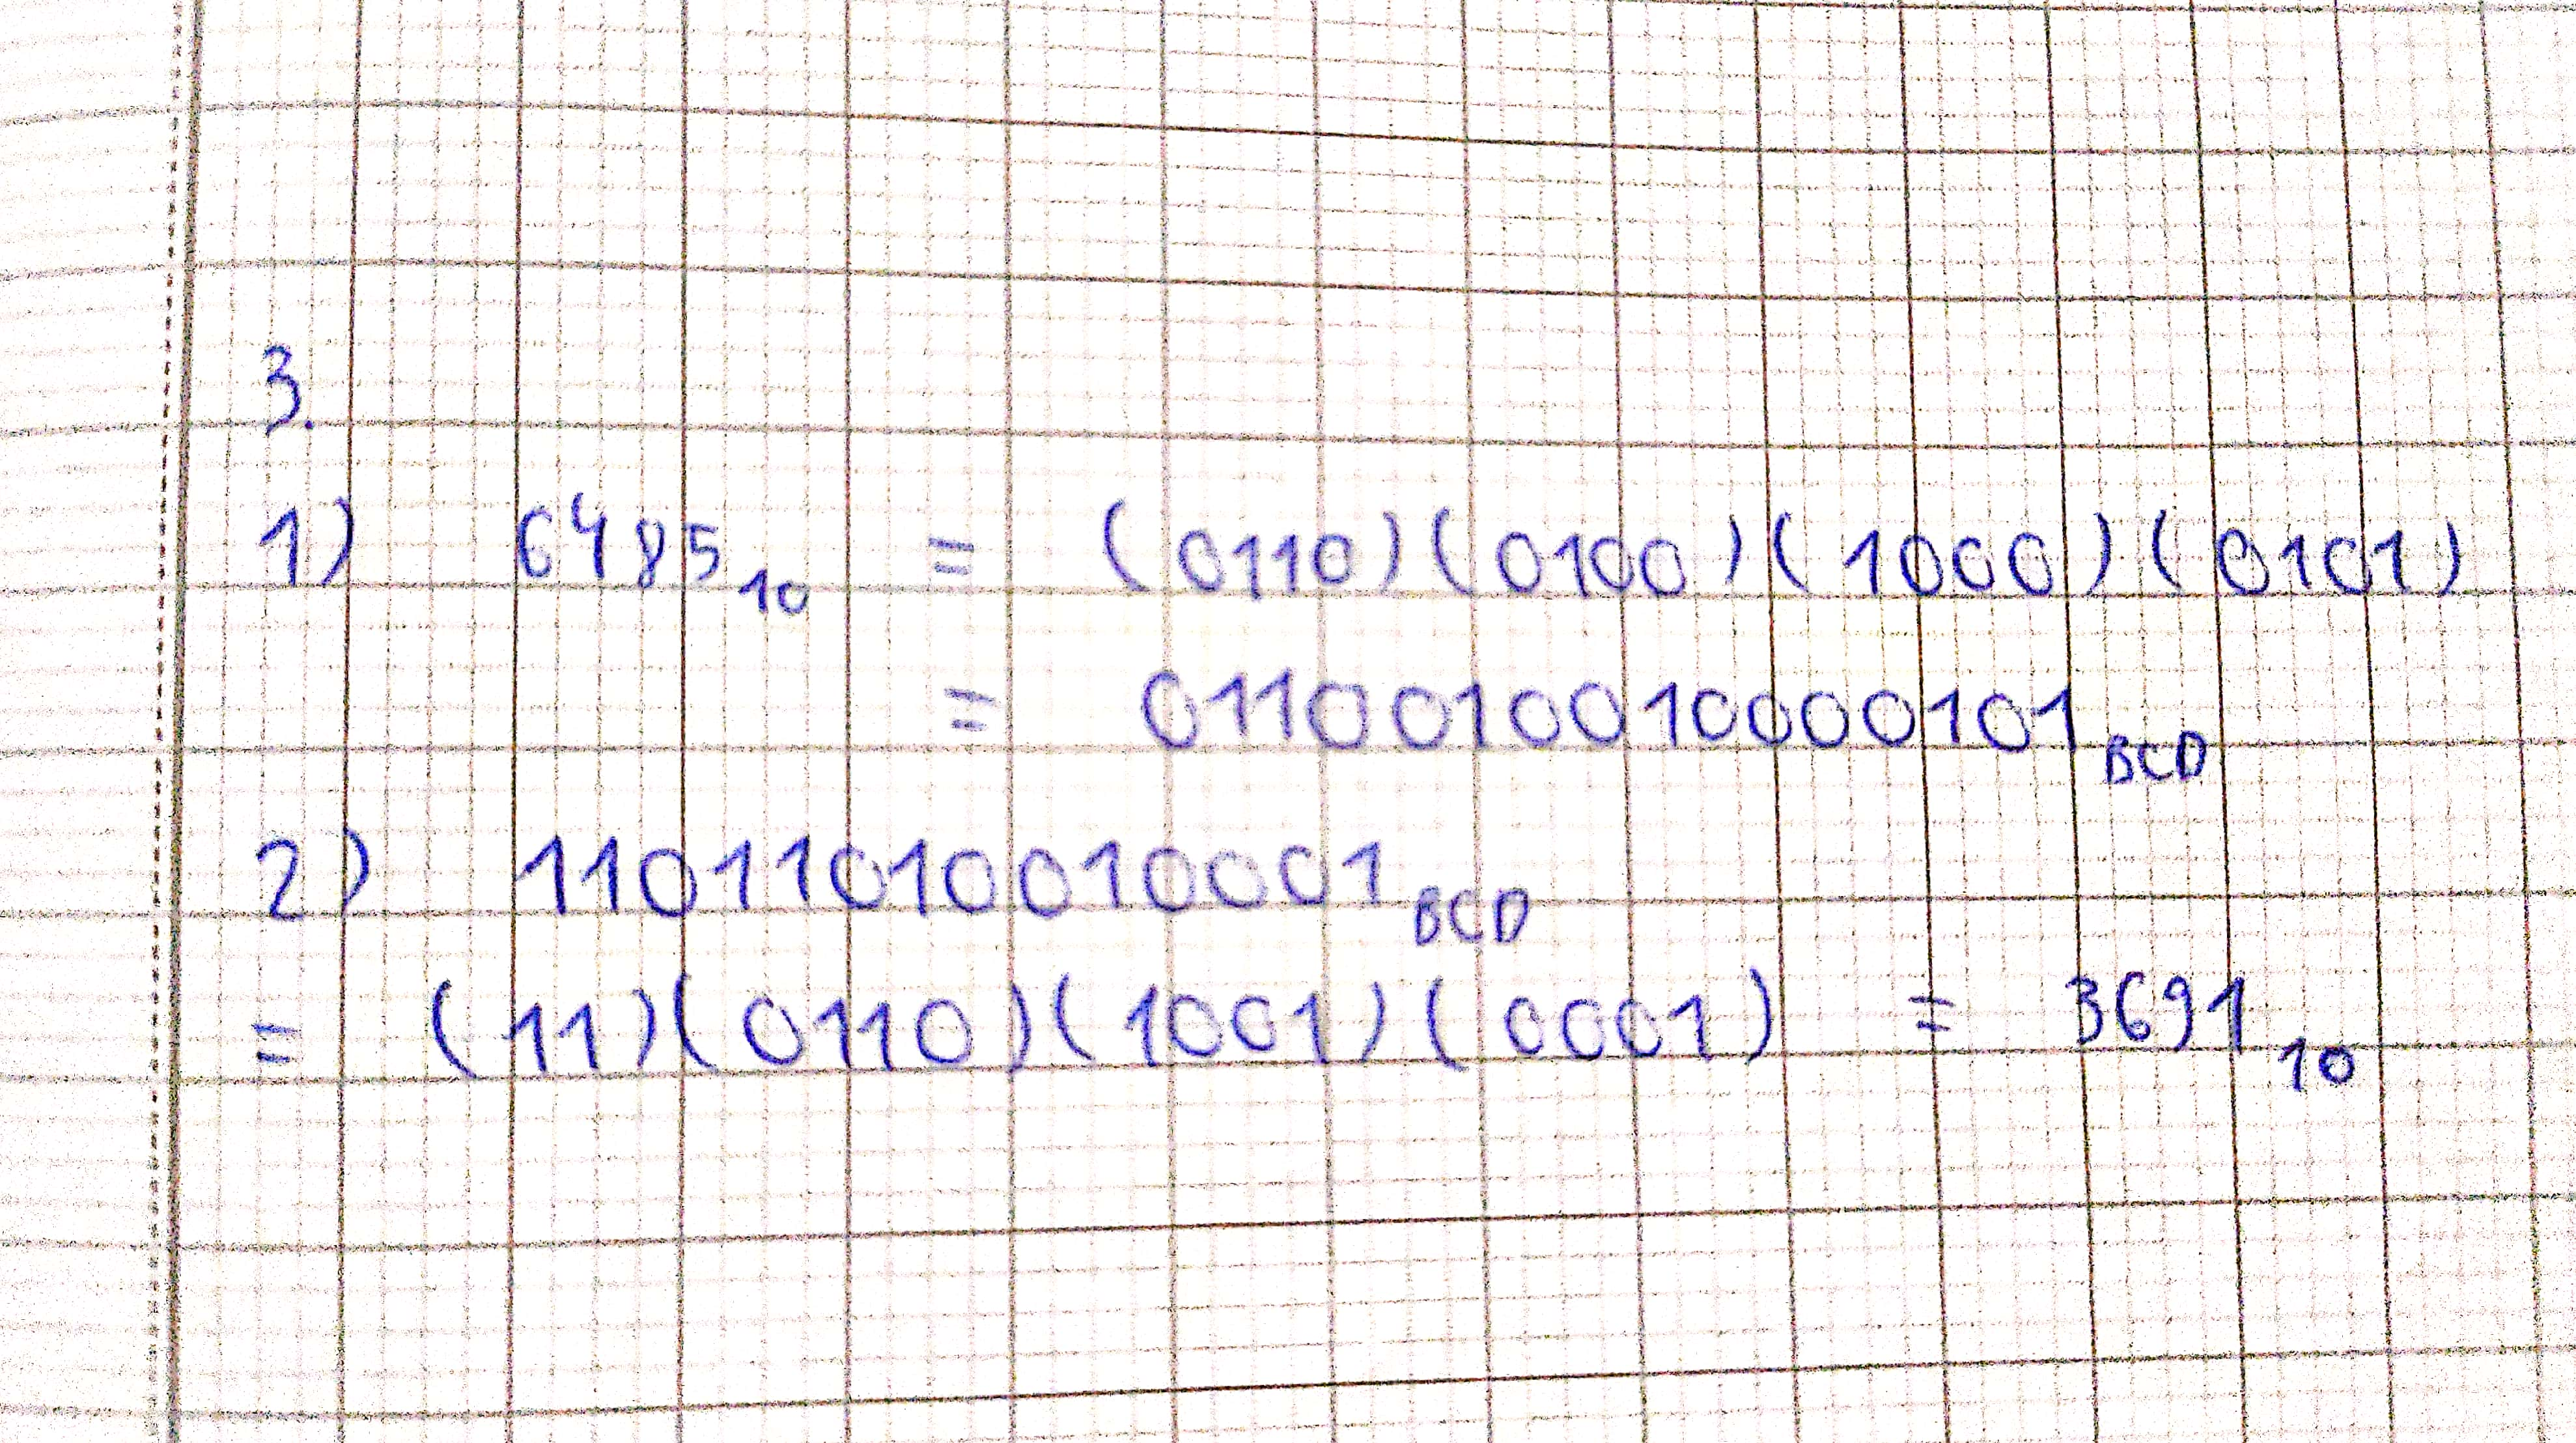 3.
1) 6485 10 = (0110)(0100)(1000)(0101)
= 0110010010000101 BCD
2) 11011010010001 BCD
= (11)(0110)(1001)(0001) = 3691 10